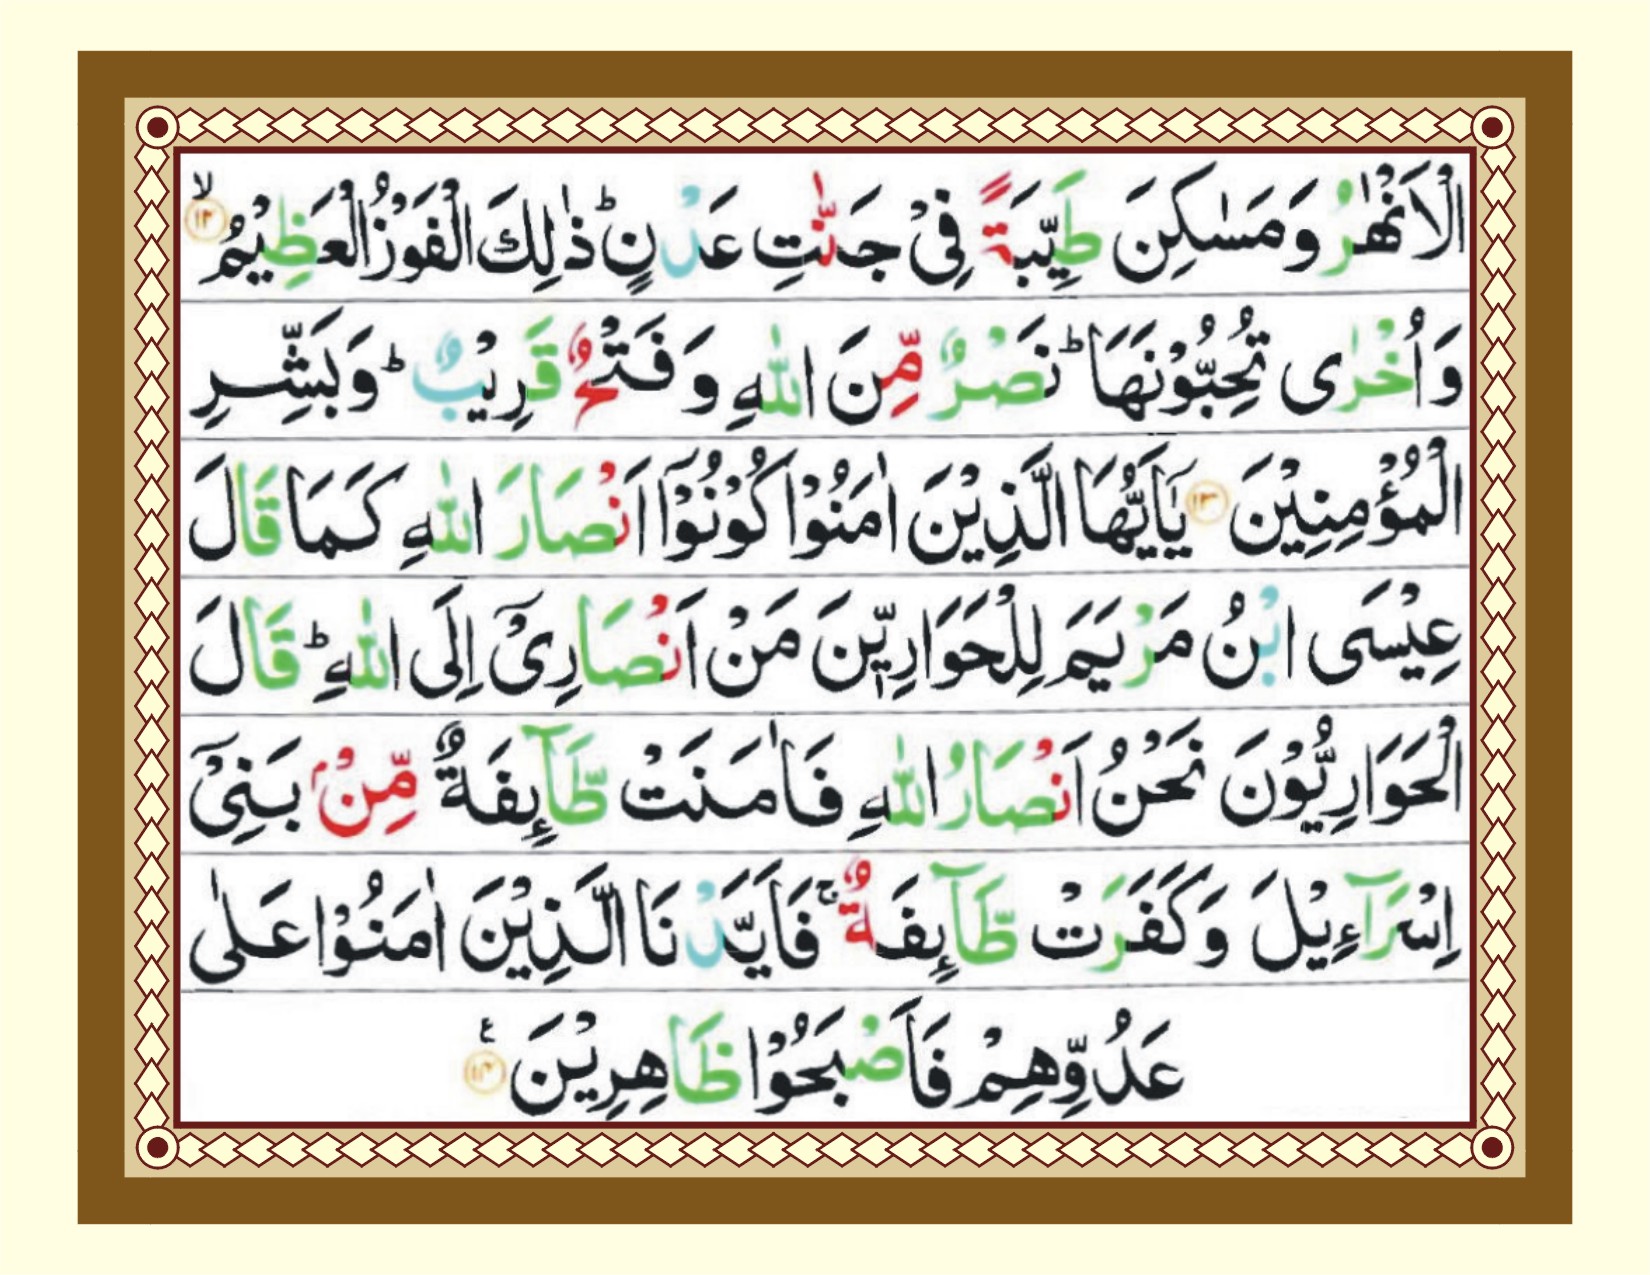 الْاَنْهٰرُ وَمَسٰكِنَ طَيِّبَةً فِىْ جَنّٰتِ عَدْنٍ ؕ ذٰ لِكَ الْفَوْزُ الْعَظِيْمُ ۙ‏ ﴿۱۲﴾
وَاُخْرٰى تُحِبُّوْنَهَا ؕ نَصْرٌ مِّنَ اللّٰهِ وَ فَتْحٌ قَرِيْبٌ ؕ وَبَشِّرِ
الْمُؤْمِنِيْنَ ﴿۱۳﴾ يٰۤاَيُّهَا الَّذِيْنَ اٰمَنُوْا كُوْنُوْۤا اَنْصَارَ اللّٰهِ كَمَا قَالَ
عِيْسَى ابْنُ مَرْيَمَ لِلْحَوَارِيّٖنَ مَنْ اَنْصَارِىْۤ اِلَى اللّٰهِ ؕ قَالَ
الْحَوَارِيُّوْنَ نَحْنُ اَنْصَارُ اللّٰهِ فَاٰمَنَتْ طَّآٮِٕفَةٌ مِّنْۢ بَنِىْۤ
اِسْرَآءِيْلَ وَكَفَرَتْ طَّآٮِٕفَةٌ ۚ فَاَيَّدْنَا الَّذِيْنَ اٰمَنُوْا عَلٰى
عَدُوِّهِمْ فَاَصْبَحُوْا ظَاهِرِيْنَ ﴿۱۴﴾ ع